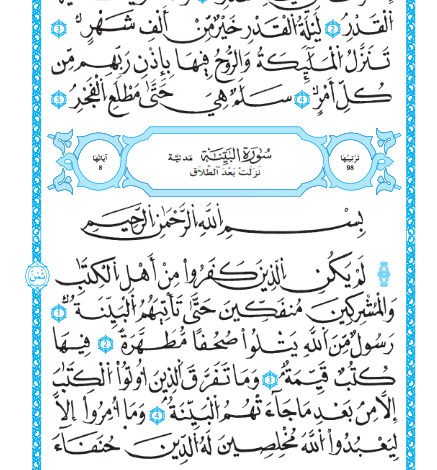 اَ۬لْقَدْرِۖ 2 لَيْلَةُ اُ۬لْقَدْرِ خَيْرٞ مِّنْ أَلْفِ شَهْرٖۖ 3
تَنَزَّلُ اُ۬لْمَلَٰٓئِكَةُ وَالرُّوحُ فِيهَا بِإِذْنِ رَبِّهِم مِّن
كُلِّ أَمْرٖۖ 4 سَلَٰمٌ هِيَ حَتَّىٰ مَطْلَعِ اِ۬لْفَجْرِۖ 5
ترتيبها 98 سُورَةُ اُ۬لْبَيِّنَة مَدنيّة آياتها 8
نَزَلَتْ بَعْدَ الطَّلَاق
بِسْمِ اِ۬للَّهِ اِ۬لرَّحْمَٰنِ اِ۬لرَّحِيمِ
لَمْ يَكُنِ اِ۬لذِينَ كَفَرُواْ مِنْ أَهْلِ اِ۬لْكِتَٰبِ
وَالْمُشْرِكِينَ مُنفَكِّينَ حَتَّىٰ تَأْتِيَهُمُ اُ۬لْبَيِّنَةُۖ 1
رَسُولٞ مِّنَ اَ۬للَّهِ يَتْلُواْ صُحُفاٗ مُّطَهَّرَةٗۖ 2 فِيهَا
كُتُبٞ قَيِّمَةٞۖ 3 وَمَا تَفَرَّقَ اَ۬لذِينَ أُوتُواْ اُ۬لْكِتَٰبَ
إِلَّا مِنۢ بَعْدِ مَا جَآءَتْهُمُ اُ۬لْبَيِّنَةُۖ 4 وَمَآ أُمِرُوٓاْ إِلَّا
لِيَعْبُدُواْ اُ۬للَّهَ مُخْلِصِينَ لَهُ اُ۬لدِّينَ حُنَفَآءَ